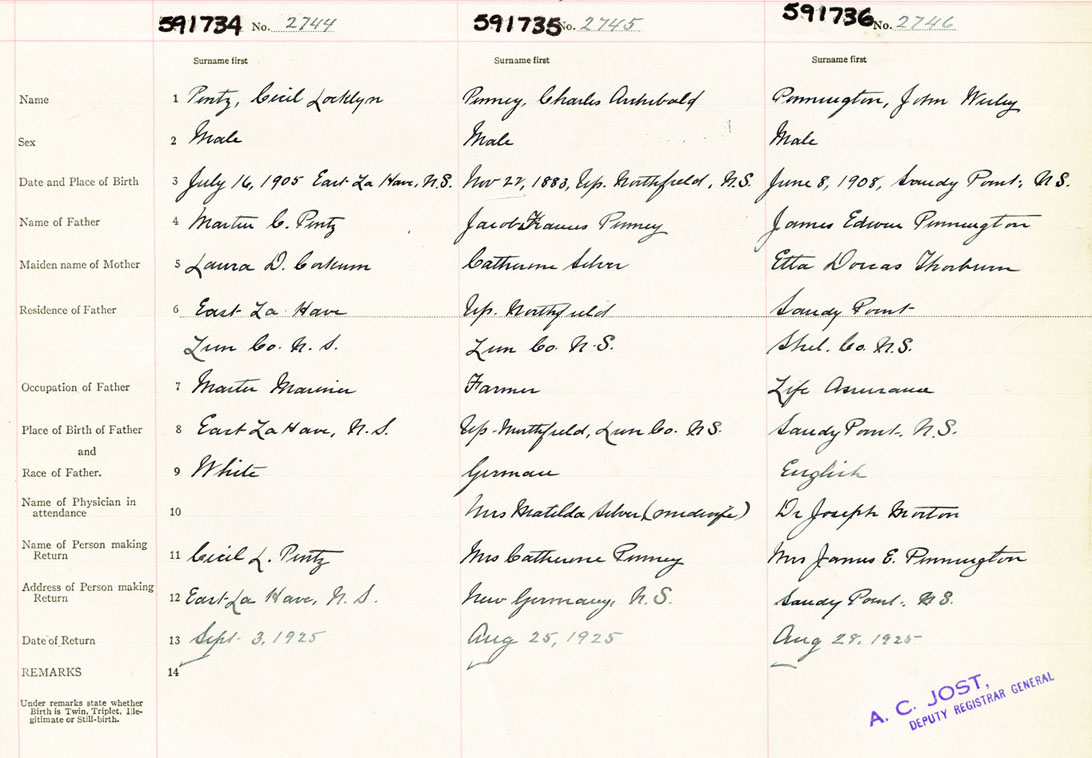 591734 No. 2744 591735 No. 2745 591736 No. 2746
Surname first Surname first Surname first
Name 1 Pentz, Cecil Locklyn Penney, Charles Archibald Pennington, John Wesley
Sex 2 Male Male Male
Date and Place of Birth 3 July 16, 1905 East La Have, N.S. Nov 22, 1883, Up. Northfield, N.S. June 8, 1908, Sandy Point, N.S.
Name of Father 4 Martin C. Pentz Jacob Francis Penney James Edwin Pennington
Maiden name of Mother 5 Laura D. Corkum Catherine Silver Etta Dorcas Thorburn
Residence of Father 6 East La Have Up. Northfield Sandy Point
Lun Co. N. S. Lun Co. N.S. Shel. Co. N.S.
Occupation of Father 7 Master Mariner Farmer Life Assurance
Place of Birth of Father 8 East La Have, N.S. Up. Northfield, Lun Co. N.S. Sandy Point, N.S.
and
Race of Father. 9 White German English
Name of Physician in
attendance 10 Mrs Matilda Silver (midwife) Dr Joseph Morton
Name of Person making
Return 11 Cecil L. Pentz Mrs Catherine Penney Mrs James E. Pennington
Address of Person making
Return 12 East La Have, N.S. New Germany, N.S. Sandy Point, N.S.
Date of Return 13 Sept. 3, 1925 Aug 25, 1925 Aug 28, 1925
REMARKS 14
Under remarks state whether
Birth is Twin, Triplet, Ille-
gitimate or Still-birth.
A. C. JOST,
DEPUTY REGISTRAR GENERAL